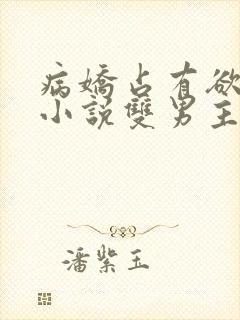 病嬌占有欲
小說雙男主
潘紫玉